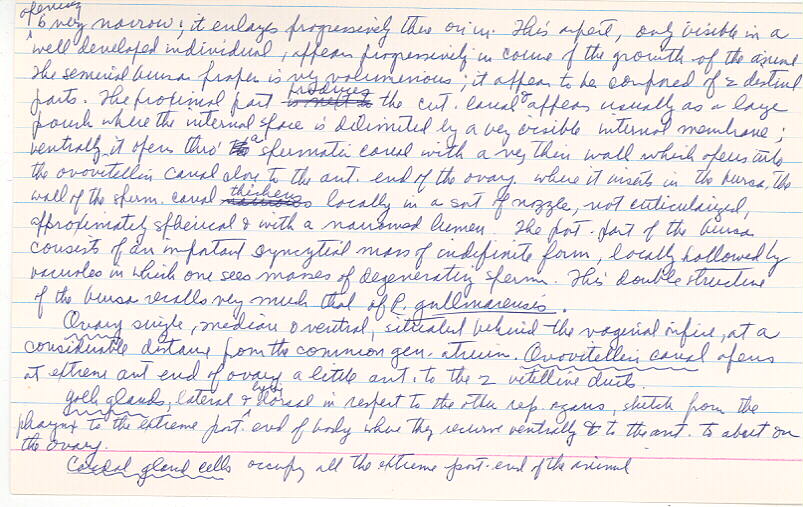 opening
is very narrow; it enlarges progressively thro origin. This aspect, only visible in a
well developed individual, appears progressively in course of the growth of the animal
The seminal bursa proper is very voluminous; it appears to be composed of 2 distinct
parts. The proximal part producing the cut. canal appears usually as a large
pouch where the internal space is delimited by a very visible internal membrane;
ventrally it opens thro' a spermatic canal with a very thin wall which opens into
the ovovitellin canal close to the ant. end of the ovary. where it inserts in the bursa, the
wall of the sperm. canal thickens locally in a sort of nozzle, not cuticularized,
approximately spherical & with a narrowed lumen. The post. part of the bursa
consists of an important syncytial mass of indefinite form, locally hollowed by
vacuoles in which one sees masses of degenerating sperm. This double structure
of the bursa recalls very much that of P. gullmarensis.
Ovary single, median & ventral, situated behind the vaginal orifice, at a
considerable distance from the common gen. atrium. Ovovitellin canal opens
at extreme ant end of ovary a little ant. to the 2 vitelline ducts.
Yolk glands, lateral & dorsal in respect to the other rep. organs, stretch from the
pharynx to the extreme post. end of body where they recurve ventrally & to the ant. to abut on
the ovary.
Caudal gland cells occupy all the extreme post. end of the animal